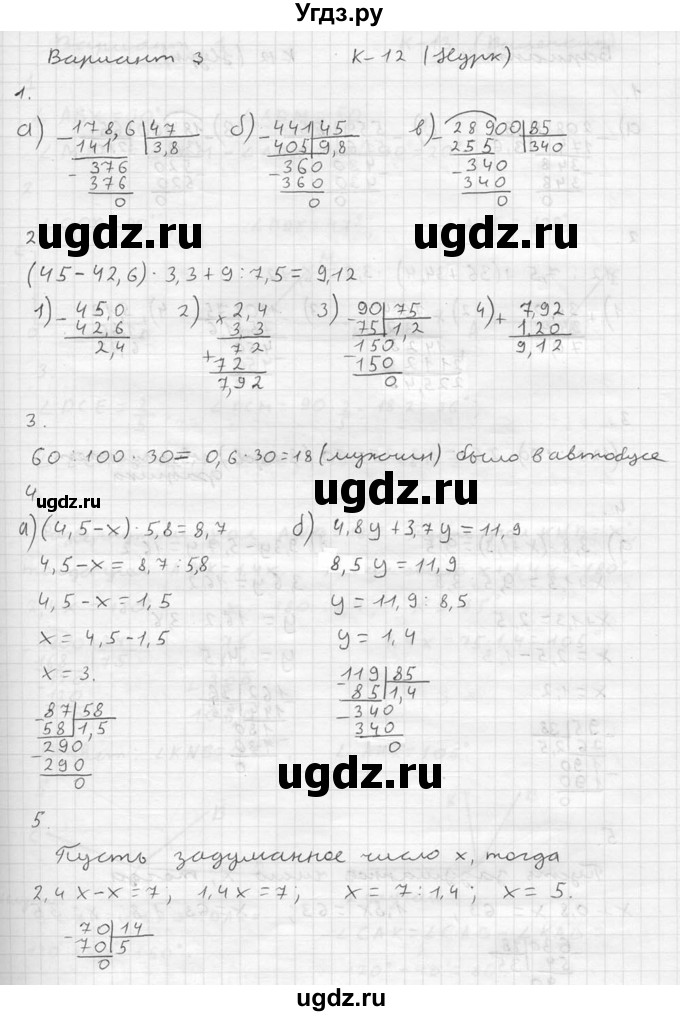 Угдз.ру
Вариант 3 К-12 (Нурк)
1.
а) 178,6 | 47 б) 441 | 45 в) 28900 | 85
141 | 3,8 405 | 9,8 255 | 340
376 360 340
376 360 340
0 0 0
ugdz.ru ugdz.ru
2
(45-42,6) · 3,3 + 9 : 7,5 = 9,12
1) 45,0 2) 2,4 3) 90 | 75 4) 7,92
- 42,6 × 3,3 75 | 1,2 + 1,20
2,4 72 150 9,12
+ 72 150
7,92 0
3.
60 : 100 · 30 = 0,6 · 30 = 18 (мужчин) было в автобусе
ugdz.ru ugdz.ru
4
а) (4,5-x) · 5,8 = 8,7 б) 4,8y + 3,7y = 11,9
4,5-x = 8,7 : 5,8 8,5 y = 11,9
4,5-x = 1,5 y = 11,9 : 8,5
x = 4,5-1,5 y = 1,4
x = 3.
87 | 58 119 | 85
58 | 1,5 85 | 1,4
290 340
290 340
0 0
ugdz.ru ugdz.ru
5.
Пусть задуманное число x, тогда
2,4 x - x = 7; 1,4x = 7; x = 7 : 1,4; x = 5.
70 | 14
70 | 5
0
ugdz.ru